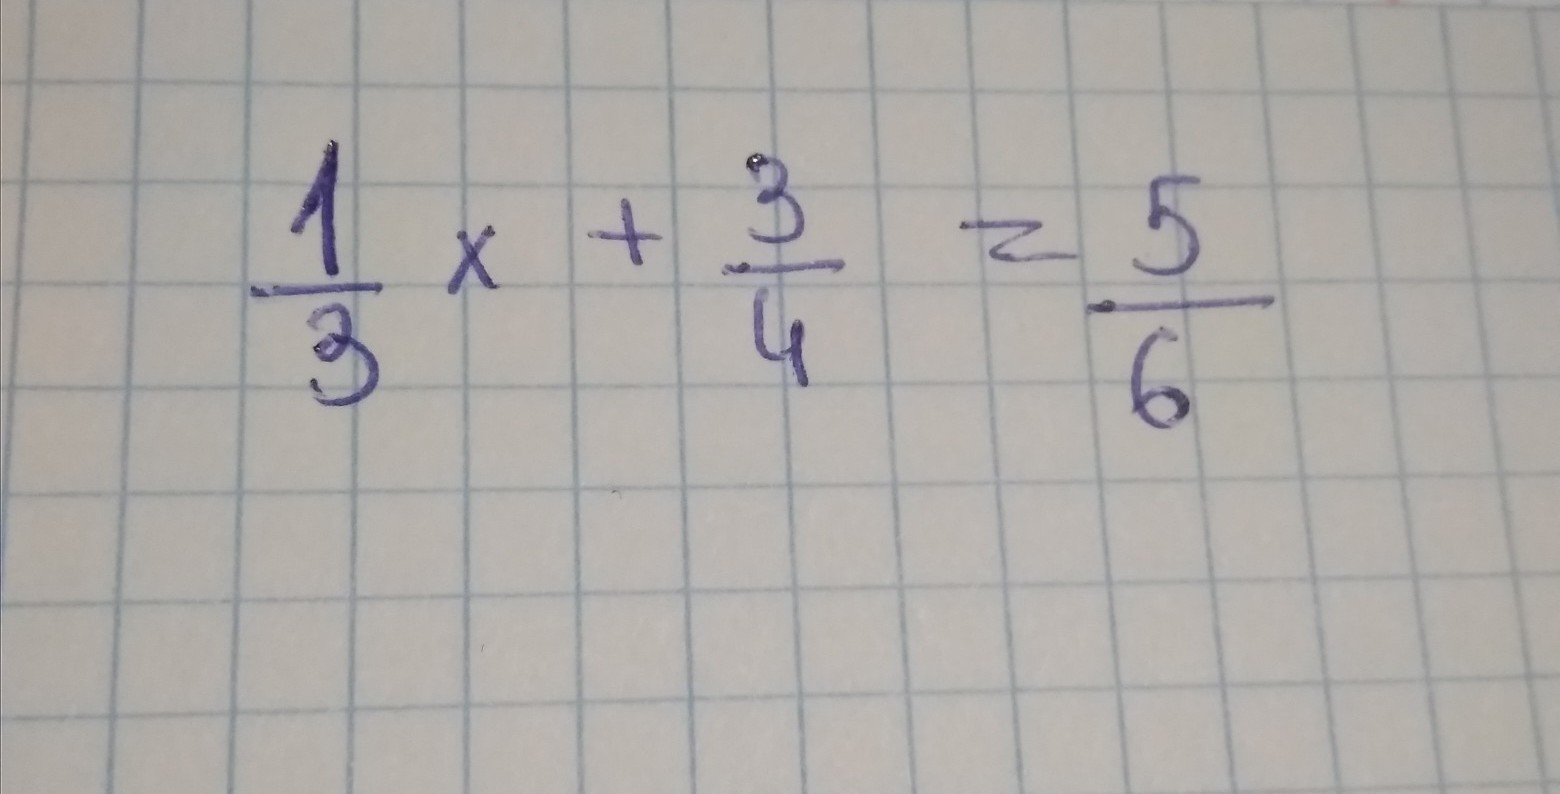 1/3 x + 3/4 = 5/6